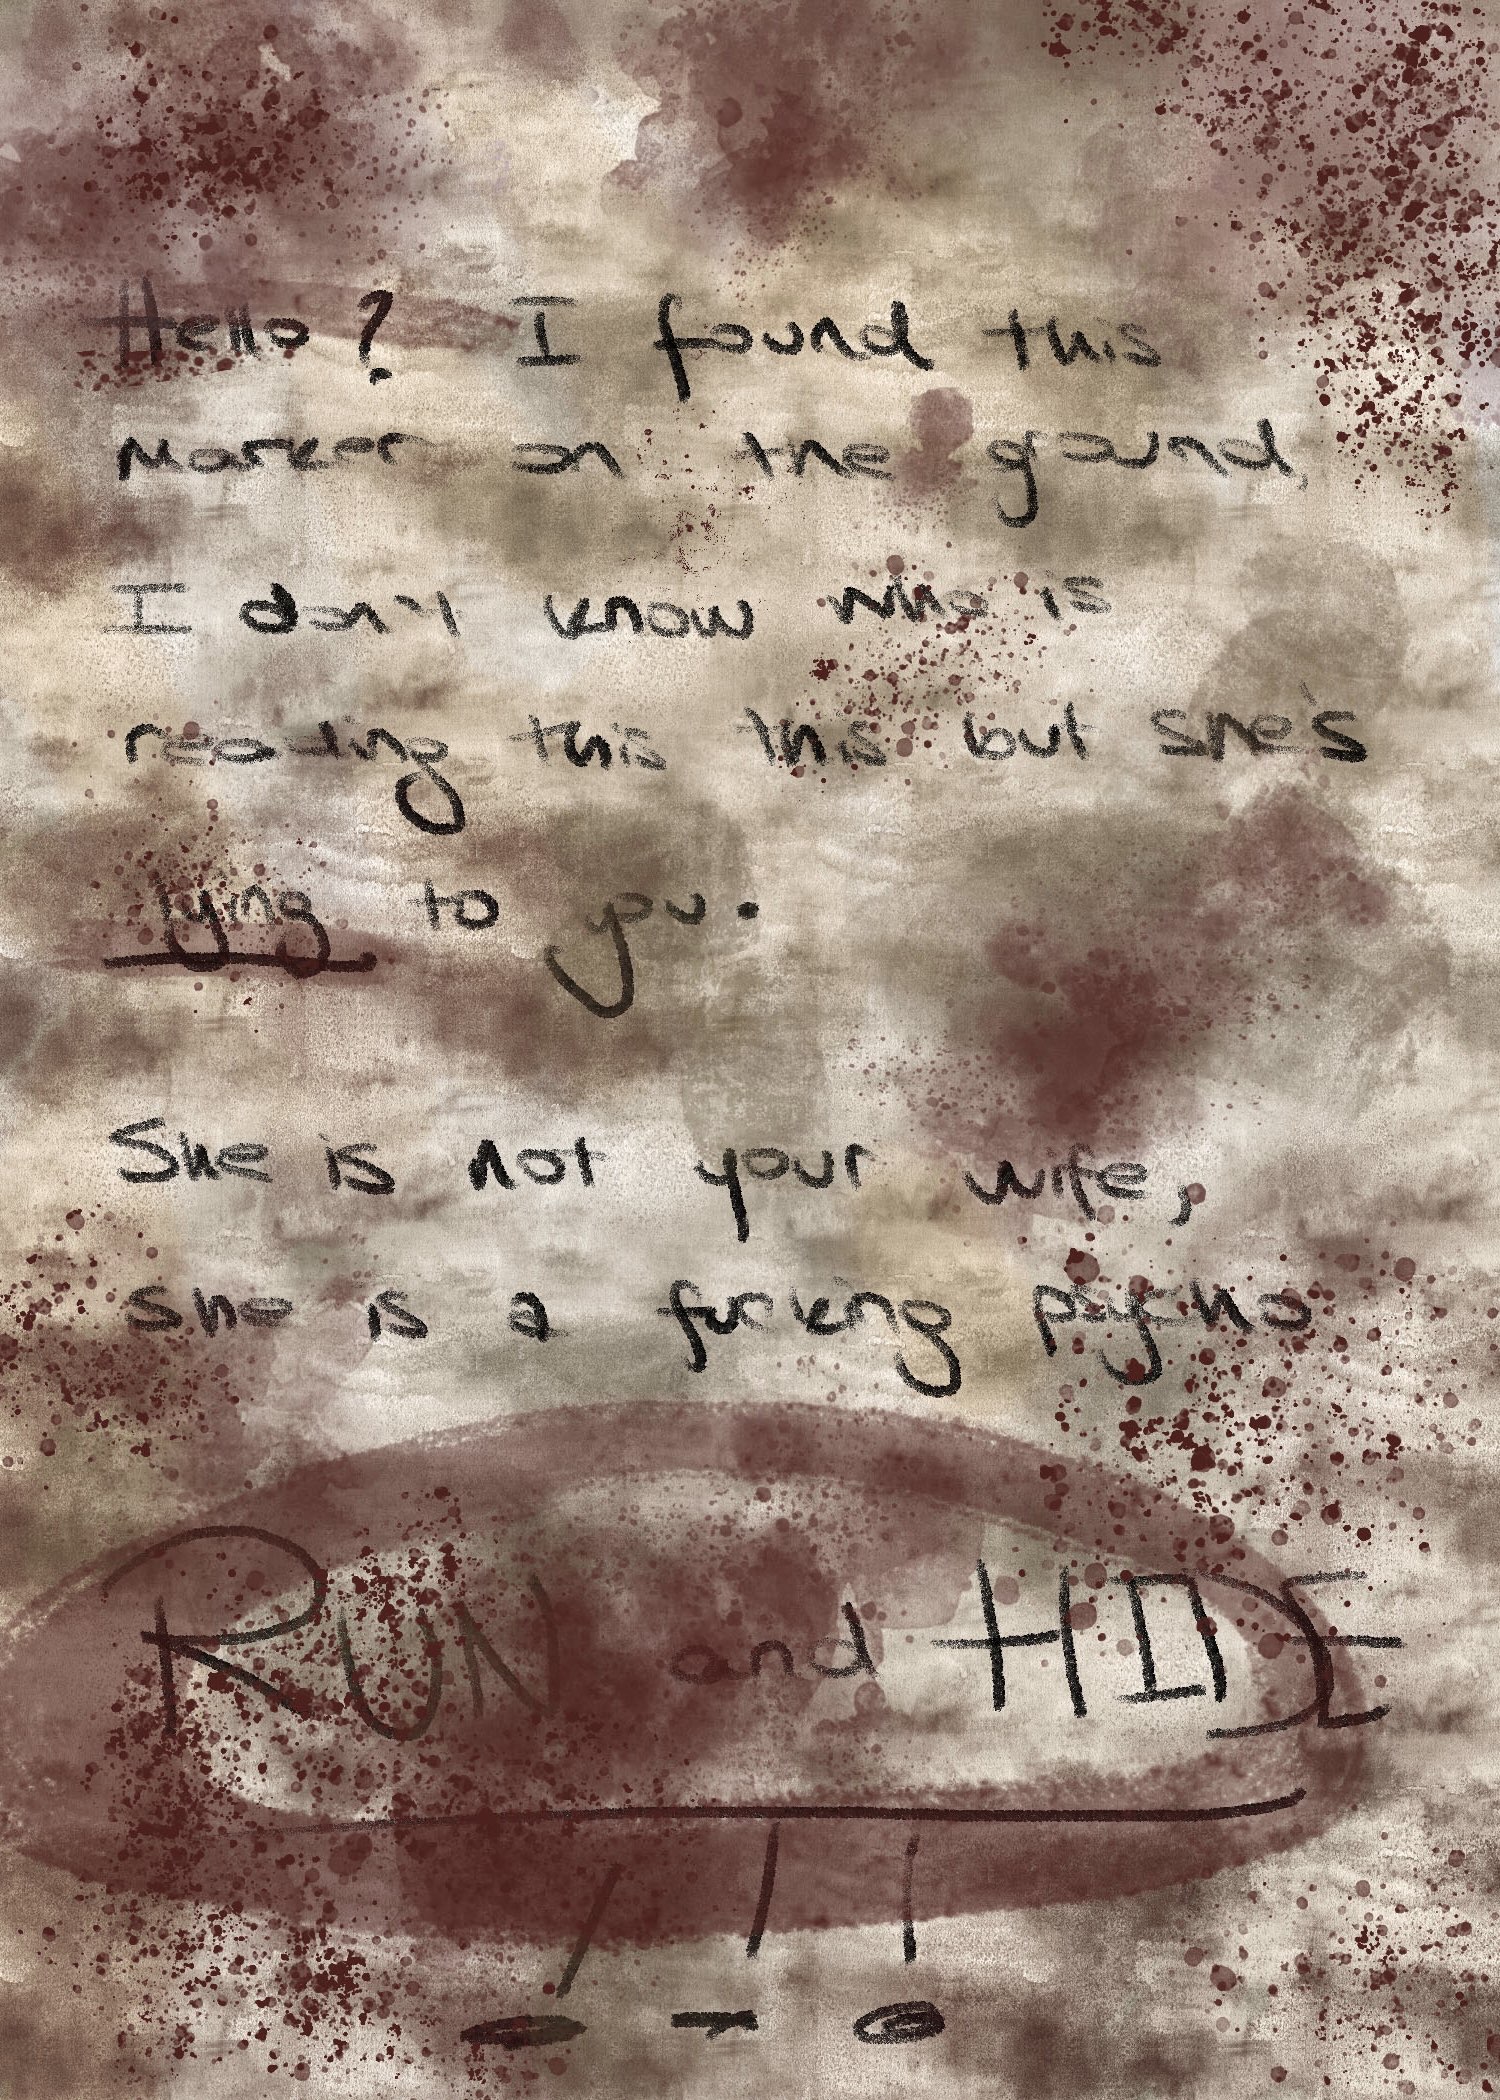 Hello? I found this
Marker on the ground,
I don't know who is
reading this this but she's
lying to you.
She is not your wife,
she is a fucking psycho
RUN and HIDE
!!!